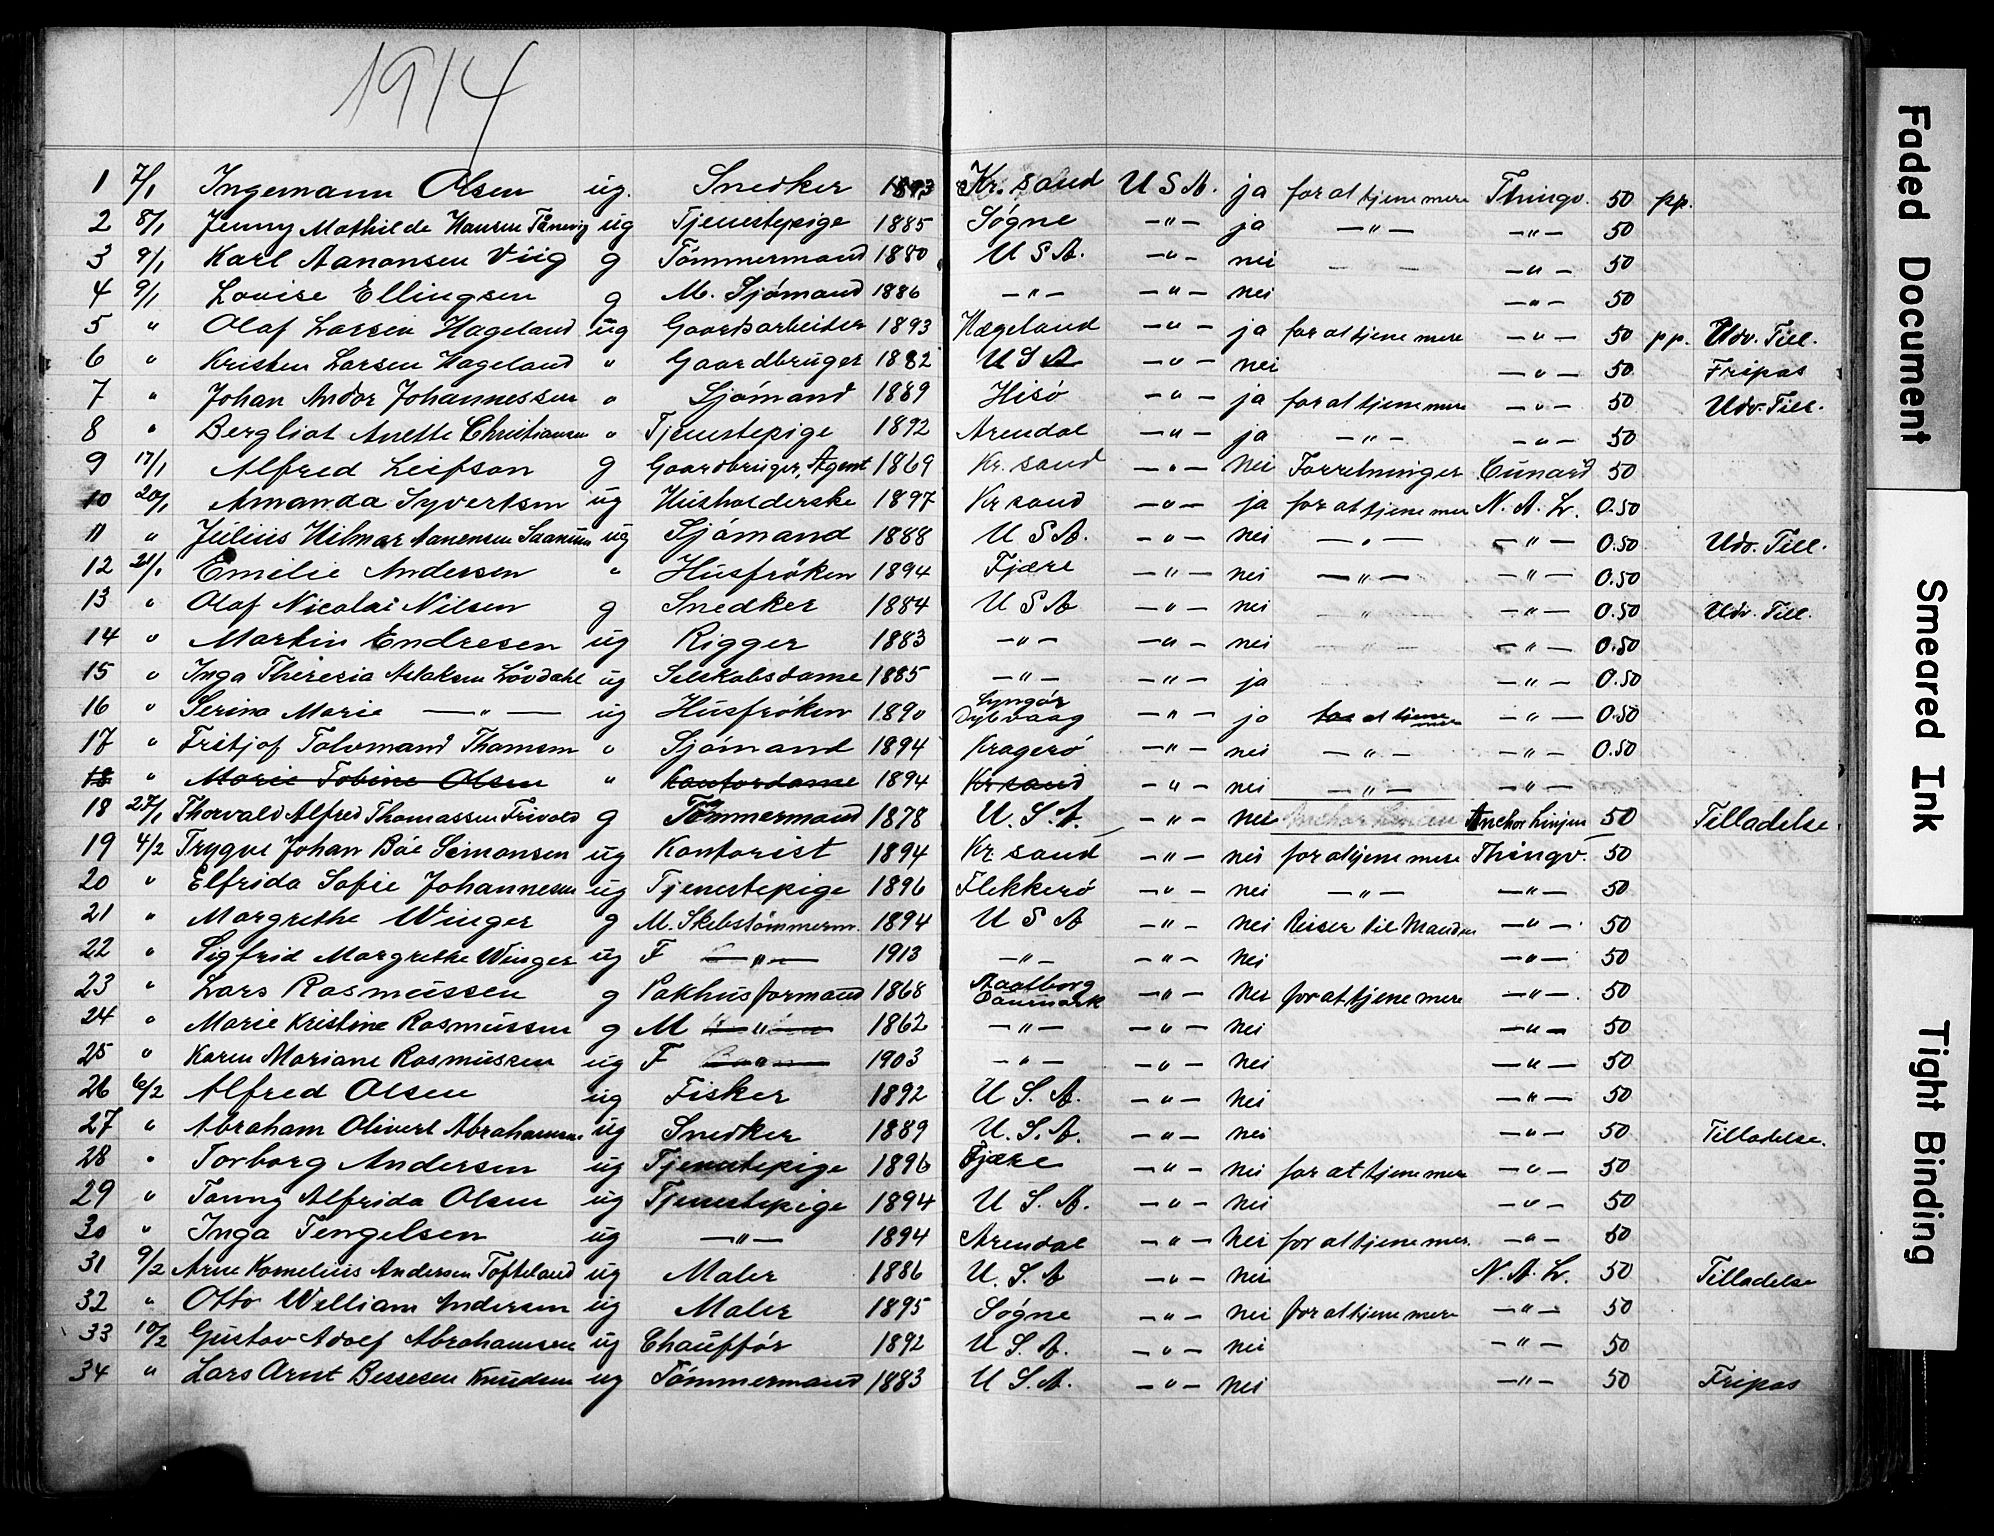 1914
1 7/1 Ingemann Olsen ug. Snedker 1893 Kr. sand U S A. ja for at tjene mere Thingv. 50 pp.
2 8/1 Jenny Mathilde Hansen ug Tjenestepige 1885 Søgne —"— ja —"— —"— 50
3 9/1 Karl Aanonsen Viig g Tömmermand 1880 U S A. —"— nei —"— 50
4 9/1 Lovise Ellingsen g M. Sjømand 1886 —"— —"— nei —"— 50
5 " Olaf Larsen Hageland ug Gaardsarbeider 1893 Hægeland —"— ja for at tjene mere —"— 50 pp. Udv. Till.
6 " Kristen Larsen Hageland " Gaardbruger 1882 U S A —"— nei —"— 50 Fripas
7 " Johan Andor Johannessen " Sjömand 1889 Hisö —"— ja for at tjene mere —"— 50 Udv. Till.
8 " Bergliot Anette Christiansen " Tjenestepige 1892 Arendal —"— ja —"— —"— 50
9 17/1 Alfred Leifson g Gaardbruger, Agent 1869 Kr. sand —"— nei Forretninger Cunard 50
10 20/1 Amanda Syvertsen ug Husholderske 1897 Kr sand —"— ja for at tjene mer N. A. L. 0.50
11 " Julius Hilmar Aanensen ug Sjömand 1888 U S A. —"— nei —"— —"— 0.50 Udv. Till.
12 21/1 Emilie Andersen " Husfrøken 1894 Fjære —"— nei —"— —"— 0.50
13 " Olaf Nicolai Nilsen g Snedker 1884 U S A —"— nei —"— 0.50 Udv. Till.
14 " Martin Endresen ug Rigger 1883 —"— —"— nei —"— 0.50
15 " Inga Theresia Aslaksen Lövdahl ug Selskabsdame 1885 —"— —"— ja —"— 0.50
16 " Serina Marie —"— ug Husfrøken 1890 Lyngör Dybvaag —"— ja for at tjene mere —"— 0.50
17 " Fritjof Tolvmand Thomsen " Sjömand 1894 Kragerö —"— nei —"— —"— 0.50
18 " Marie Tobine Olsen " Kontordame 1894 Kr sand —"— nei —"— —"—
18 27/1 Thorvald Alfred Thomassen Trivold g Tömmermand 1878 U. S. A. —"— nei Anchor Linien Anchor Linjen 50 Tilladelse.
19 4/2 Trygve Johan Böe Simonsen ug Kontorist 1894 Kr. sand —"— nei for at tjene mere Thingv. 50
20 " Elfrida Sofie Johannesen ug Tjenestepige 1896 Flekkerö —"— nei —"— —"— 50
21 " Margrethe Winger g M. Skibstömmerm. 1894 U S A —"— nei Reiser til Manden —"— 50
22 " Sigfrid Margrethe Winger ug F —"— 1913 —"— —"— nei —"— 50
23 " Lars Rasmussen g Pakhusformand 1868 Aaalborg Danmark —"— nei for at tjene mere —"— 50
24 " Marie Kristine Rasmussen g M —"— 1862 —"— —"— nei —"— 50
25 " Karen Mariane Rasmussen ug F —"— 1903 —"— —"— nei —"— 50
26 6/2 Alfred Olsen ug Fisker 1892 U. S. A. —"— nei —"— 50
27 " Abraham Olivert Abrahamsen ug Snedker 1889 U. S. A. —"— nei —"— 50 Tilladelse.
28 " Torborg Andersen ug Tjenestepige 1896 Fjære —"— nei for at tjene mere —"— 50
29 " Tonny Alfrida Olsen ug Tjenestepige 1894 U. S. A. —"— nei —"— 50
30 " Inga Tengelsen ug —"— 1894 Arendal —"— nei for at tjene mer. —"— 50
31 9/2 Arne Kornelius Andersen Tofteland ug Maler 1886 U. S. A —"— nei N. A. L. 50 Tilladelse
32 " Otto William Andersen ug Maler 1895 Søgne —"— nei for at tjene mere —"— 50
33 10/2 Gustav Adolf Abrahamsen ug Chaufför 1892 U. S. A. —"— nei —"— 50
34 " Lars Arnt Bessesen Knudsen ug Tömmermand 1883 U. S. A. —"— nei —"— 50 Fripas
Faded Document
Smeared Ink
Tight Binding